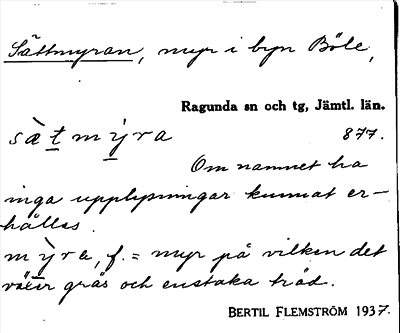 Sättmyran, myr i byn Böle,
Ragunda sn och tg, Jämtl. län.
sæ̀t̲my̲ra 877.
Om namnet ha
inga upplysningar kunnat er-
hållas.
mỳ̲ra, f. = myr på vilken det
växer gräs och enstaka träd.
BERTIL FLEMSTRÖM 1937.